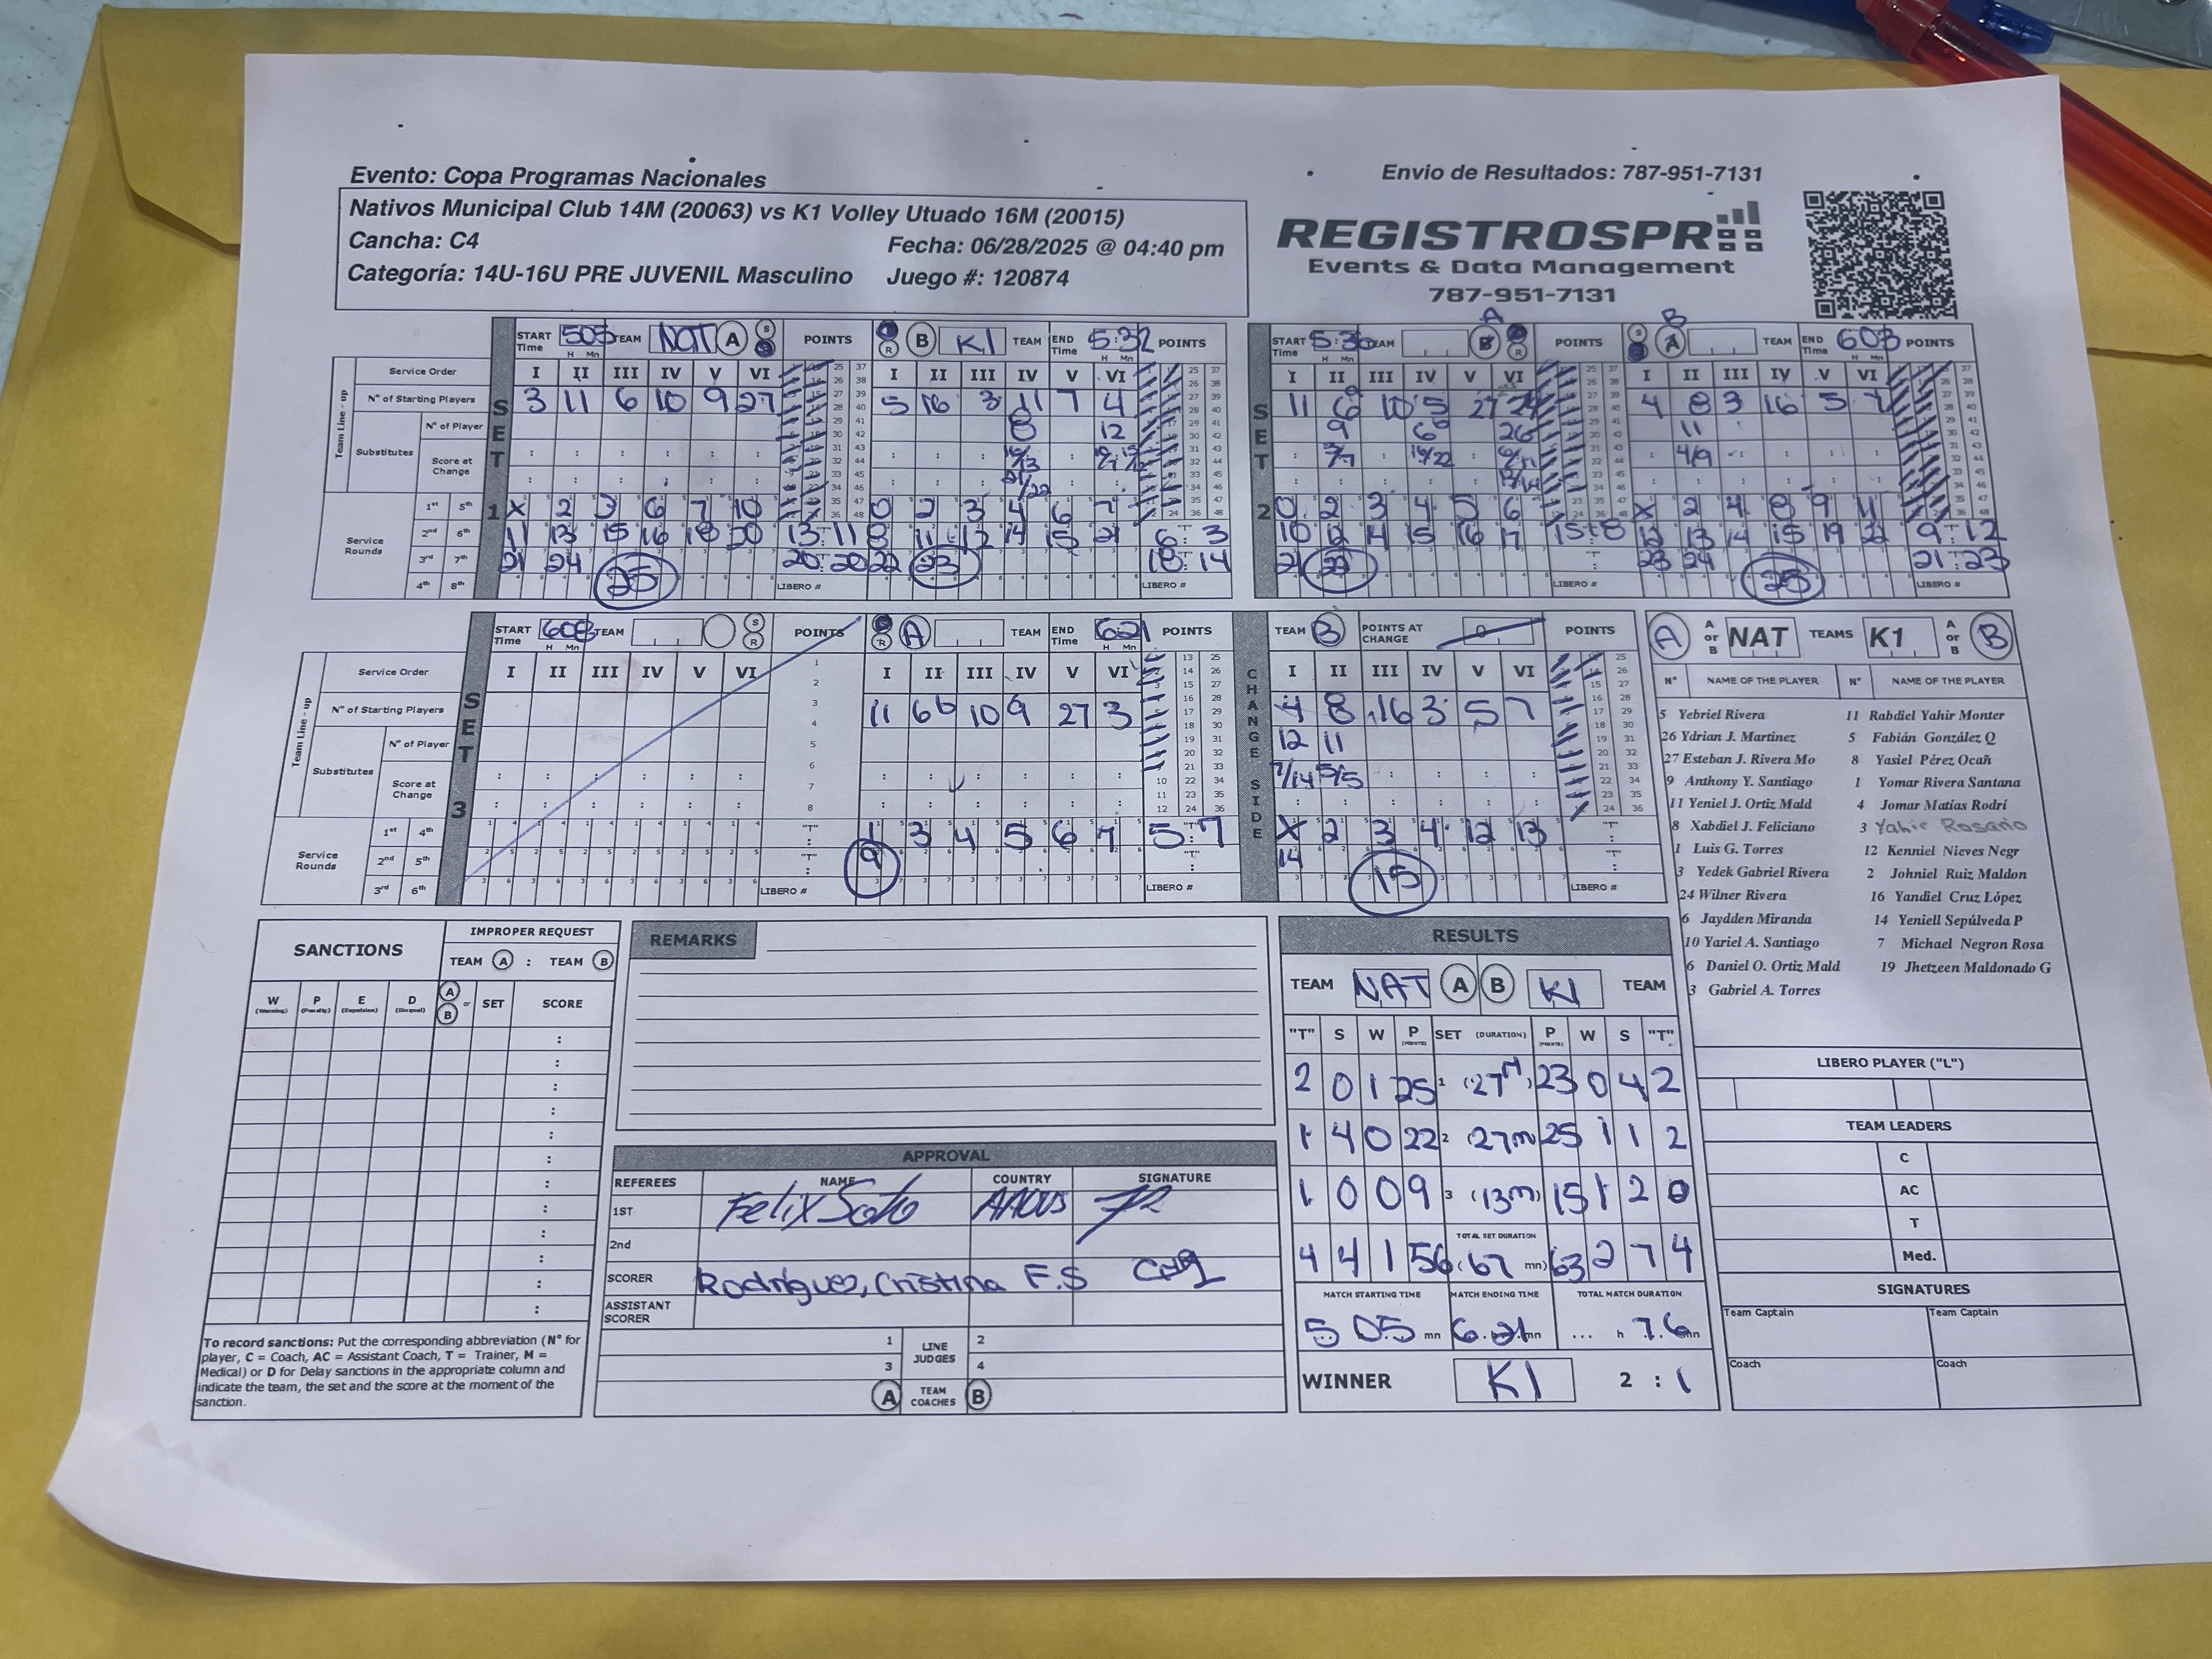 Evento: Copa Programas Nacionales
Envio de Resultados: 787-951-7131
Nativos Municipal Club 14M (20063) vs K1 Volley Utuado 16M (20015)
Cancha: C4 Fecha: 06/28/2025 @ 04:40 pm
Categoría: 14U-16U PRE JUVENIL Masculino Juego #: 120874
REGISTROSPR
Events & Data Management
787-951-7131
SET 1
START Time 505 TEAM NAT A S POINTS R B K1 TEAM END Time 5:32 POINTS
Team Line-up
Service Order I II III IV V VI I II III IV V VI
N° of Starting Players 3 11 6 10 9 27 5 16 3 11 7 4
Substitutes N° of Player 8 12
Score at Change
Service Rounds
1st 5th X 2 3 6 7 10 0 2 3 4 6 7
2nd 6th 11 13 15 16 18 20 13:11 8 11 12 14 15 21 6:3
3rd 7th 21 24 25 20:20 22 23 18:14
4th 8th LIBERO # LIBERO #
SET 2
START Time 5:36 TEAM B A POINTS A B TEAM END Time 603 POINTS
I II III IV V VI I II III IV V VI
11 6 10 5 27 4 8 3 16 5 7
9 6 26 11
16/22 4/9
0 2 3 4 5 6 X 2 4 8 9 11
10 12 14 15 16 17 15:8 12 13 14 15 19 9:12
21 22 23 24 25 21:23
LIBERO # LIBERO #
SET 3
START Time 608 TEAM S R POINTS A TEAM END Time 621 POINTS
CHANGE SIDE
TEAM B POINTS AT CHANGE POINTS
Team Line-up
Service Order I II III IV V VI I II III IV V VI I II III IV V VI
N° of Starting Players 11 66 10 9 27 3 4 8 16 3 5 7
Substitutes N° of Player 12 11
Score at Change 7/14 5/5
Service Rounds
1st 4th 1 3 4 5 6 7 5:7 X 2 3 4 12 13 "T"
2nd 5th 9 14 "T"
3rd 6th 15
LIBERO # LIBERO # LIBERO #
A A or B NAT TEAMS K1 A or B B
N° NAME OF THE PLAYER N° NAME OF THE PLAYER
5 Yebriel Rivera 11 Rabdiel Yahir Monter
26 Ydrian J. Martinez 5 Fabián González Q
27 Esteban J. Rivera Mo 8 Yasiel Pérez Ocañ
9 Anthony Y. Santiago 1 Yomar Rivera Santana
11 Yeniel J. Ortiz Mald 4 Jomar Matías Rodrí
8 Xabdiel J. Feliciano 3 Yahir Rosario
1 Luis G. Torres 12 Kenniel Nieves Negr
3 Yedek Gabriel Rivera 2 Johniel Ruiz Maldon
24 Wilner Rivera 16 Yandiel Cruz López
6 Jaydden Miranda 14 Yeniell Sepúlveda P
10 Yariel A. Santiago 7 Michael Negron Rosa
6 Daniel O. Ortiz Mald 19 Jhetzeen Maldonado G
3 Gabriel A. Torres
LIBERO PLAYER ("L")
TEAM LEADERS
C
AC
T
Med.
SIGNATURES
Team Captain Team Captain
Coach Coach
SANCTIONS IMPROPER REQUEST
TEAM A : TEAM B
W (Warning) P (Penalty) E (Expulsion) D (Disqual) A or B SET SCORE
To record sanctions: Put the corresponding abbreviation (N° for
player, C = Coach, AC = Assistant Coach, T = Trainer, M =
Medical) or D for Delay sanctions in the appropriate column and
indicate the team, the set and the score at the moment of the
sanction.
REMARKS
APPROVAL
REFEREES NAME COUNTRY SIGNATURE
1ST Felix Soto
2nd
SCORER Rodríguez, Cristina F.S
ASSISTANT SCORER
1 LINE JUDGES 2
3 4
A TEAM COACHES B
RESULTS
TEAM NAT A B K1 TEAM
"T" S W P (POINTS) SET (DURATION) P (POINTS) W S "T"
2 0 1 25 1 (27m) 23 0 4 2
1 4 0 22 2 (27m) 25 1 1 2
1 0 0 9 3 (13m) 15 1 2 0
TOTAL SET DURATION
4 4 1 56 (67 mn) 63 2 7 4
MATCH STARTING TIME MATCH ENDING TIME TOTAL MATCH DURATION
5 05 mn 6:21 mn ... h 76 mn
WINNER K1 2 : 1